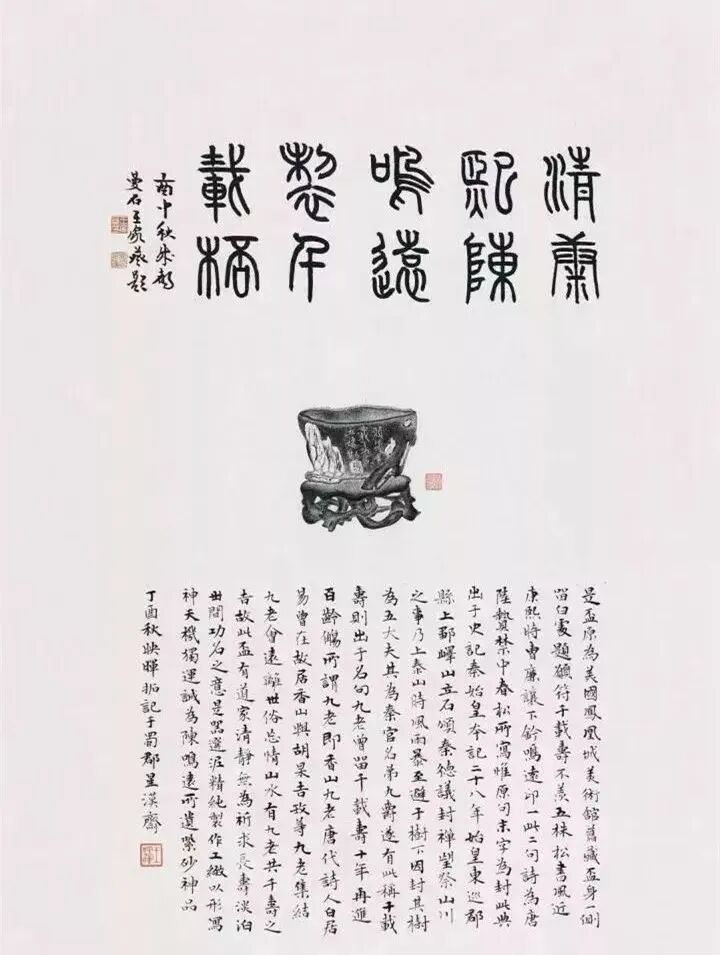 清康
熙陳
鳴遠
製千
載桮
酉中秋成都
曼石王家葵題
是盃原為美國鳳凰城美術館舊藏盃身一側
留白處題願符千載壽不羨五株松書風近
康熙時曹廉讓下鈐鳴遠印一此二句詩為唐
陸贄禁中春松所寫惟原句末字為封此典
出于史記秦始皇本記二十八年始皇東巡郡
縣上鄒嶧山立石頌秦德議封禅望祭山川
之事乃上泰山時風雨暴至避于樹下因封其樹
為五大夫其為秦官名弟九壽遂有此稱千載
壽則出于名句九老曾留千載壽十年再進
百齡觴所謂九老即香山九老唐代詩人白居
易曾在故居香山與胡杲吉玫等九老集結
九老會遠離世俗忘情山水有九老共千壽之
吉故此盃有道家清靜無為祈求長壽淡泊
世間功名之意是器選泥精純製作工緻以形寫
神天機獨運誠為陳鳴遠所遺紫砂神品
丁酉秋映暉拓記于蜀郡星漢齋